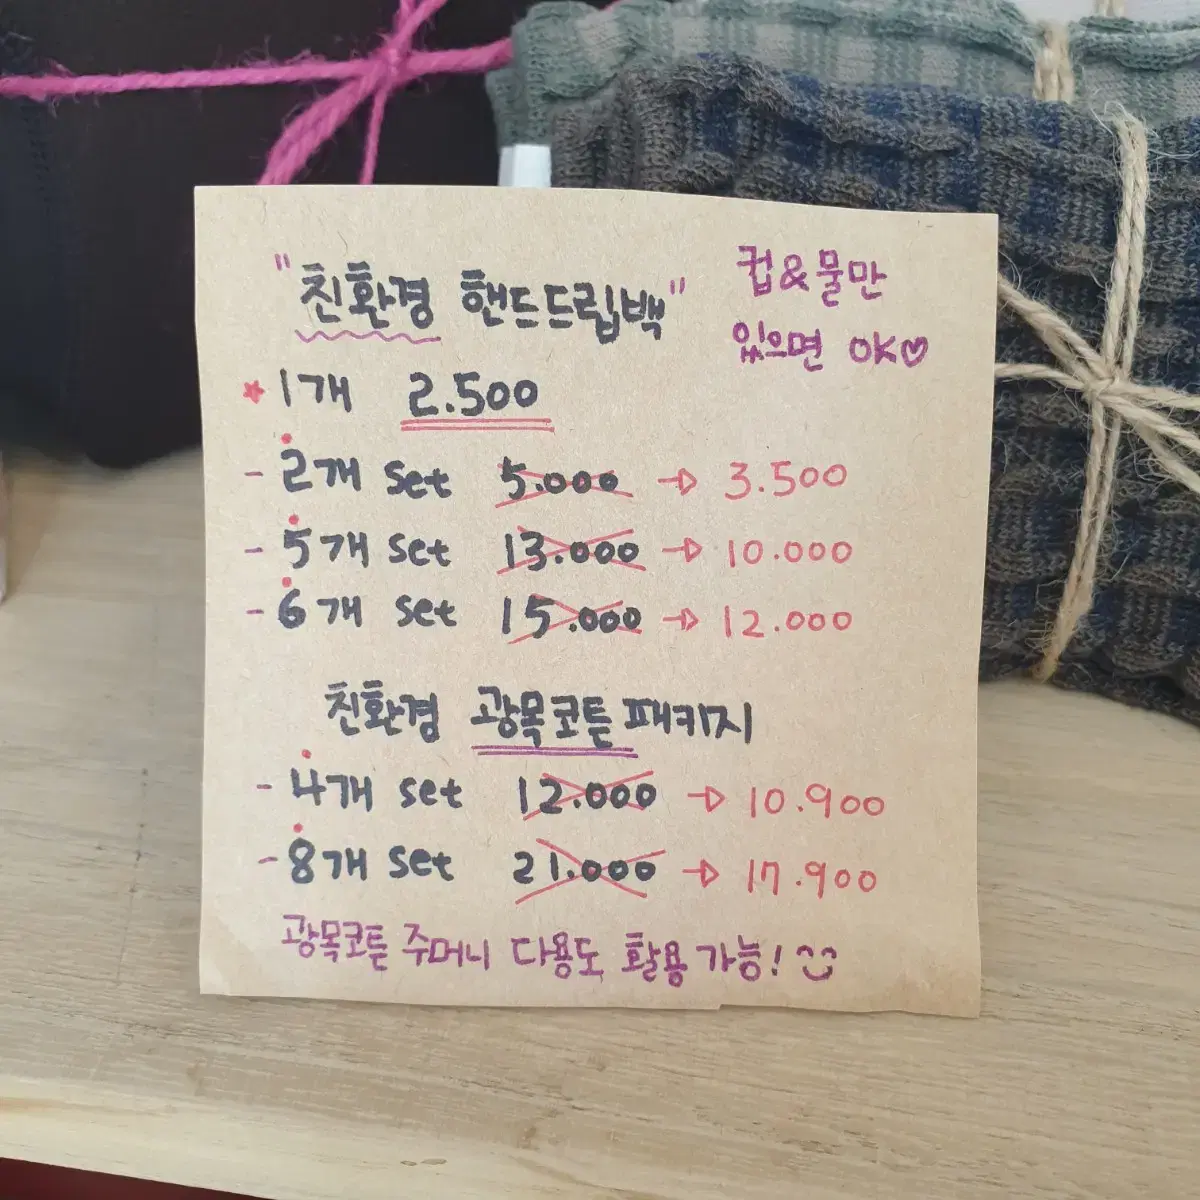 "친환경 핸드드립백"
컵&물만
있으면 OK♡
★ 1개 2.500
- 2개 set 5.000 → 3.500
- 5개 set 13.000 → 10.000
- 6개 set 15.000 → 12.000
친환경 광목코튼 패키지
- 4개 set 12.000 → 10.900
- 8개 set 21.000 → 17.900
광목코튼 주머니 다용도 활용 가능!